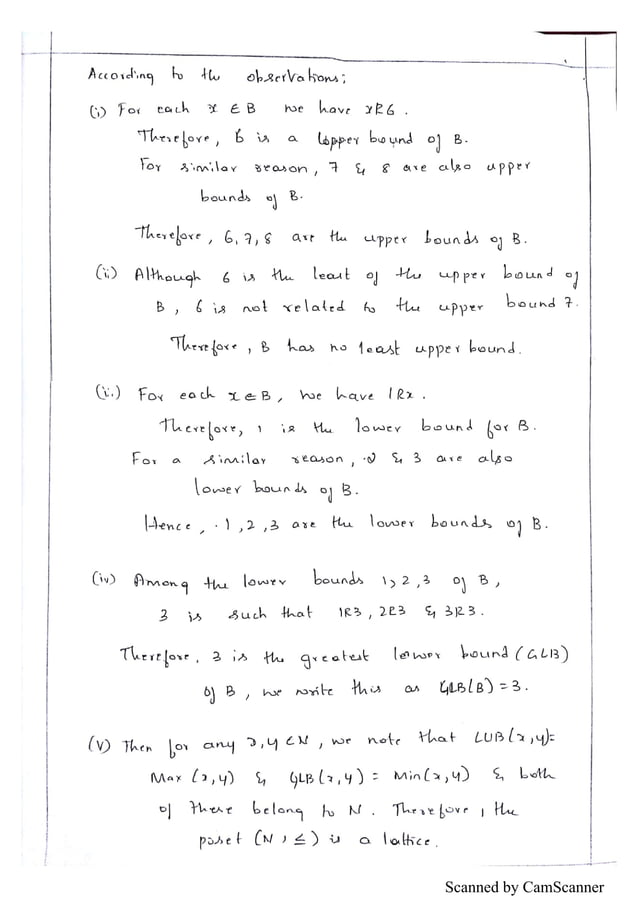 According to the observations;
(i) For each x ∈ B we have xR6.
Therefore, 6 is a Upper bound of B.
For similar reason, 7 & 8 are also upper
bounds of B.
Therefore, 6,7,8 are the upper bounds of B.
(ii) Although 6 is the least of the upper bound of
B, 6 is not related to the upper bound 7.
Therefore, B has no least upper bound.
(ii.) For each x ∈ B, we have 1Rx.
Therefore, 1 is the lower bound for B.
For a similar reason, 2 & 3 are also
lower bounds of B.
Hence, 1,2,3 are the lower bounds of B.
(iv) Among the lower bounds 1,2,3 of B,
3 is such that 1R3, 2R3 & 3R3.
Therefore, 3 is the greatest lower bound (GLB)
of B, we write this as GLB(B) = 3.
(V) Then for any x,y ∈ N, we note that LUB(x,y)=
Max (x,y) & GLB(x,y) = Min(x,y) & both
of these belong to N. Therefore, the
poset (N, ≤) is a lattice.
Scanned by CamScanner